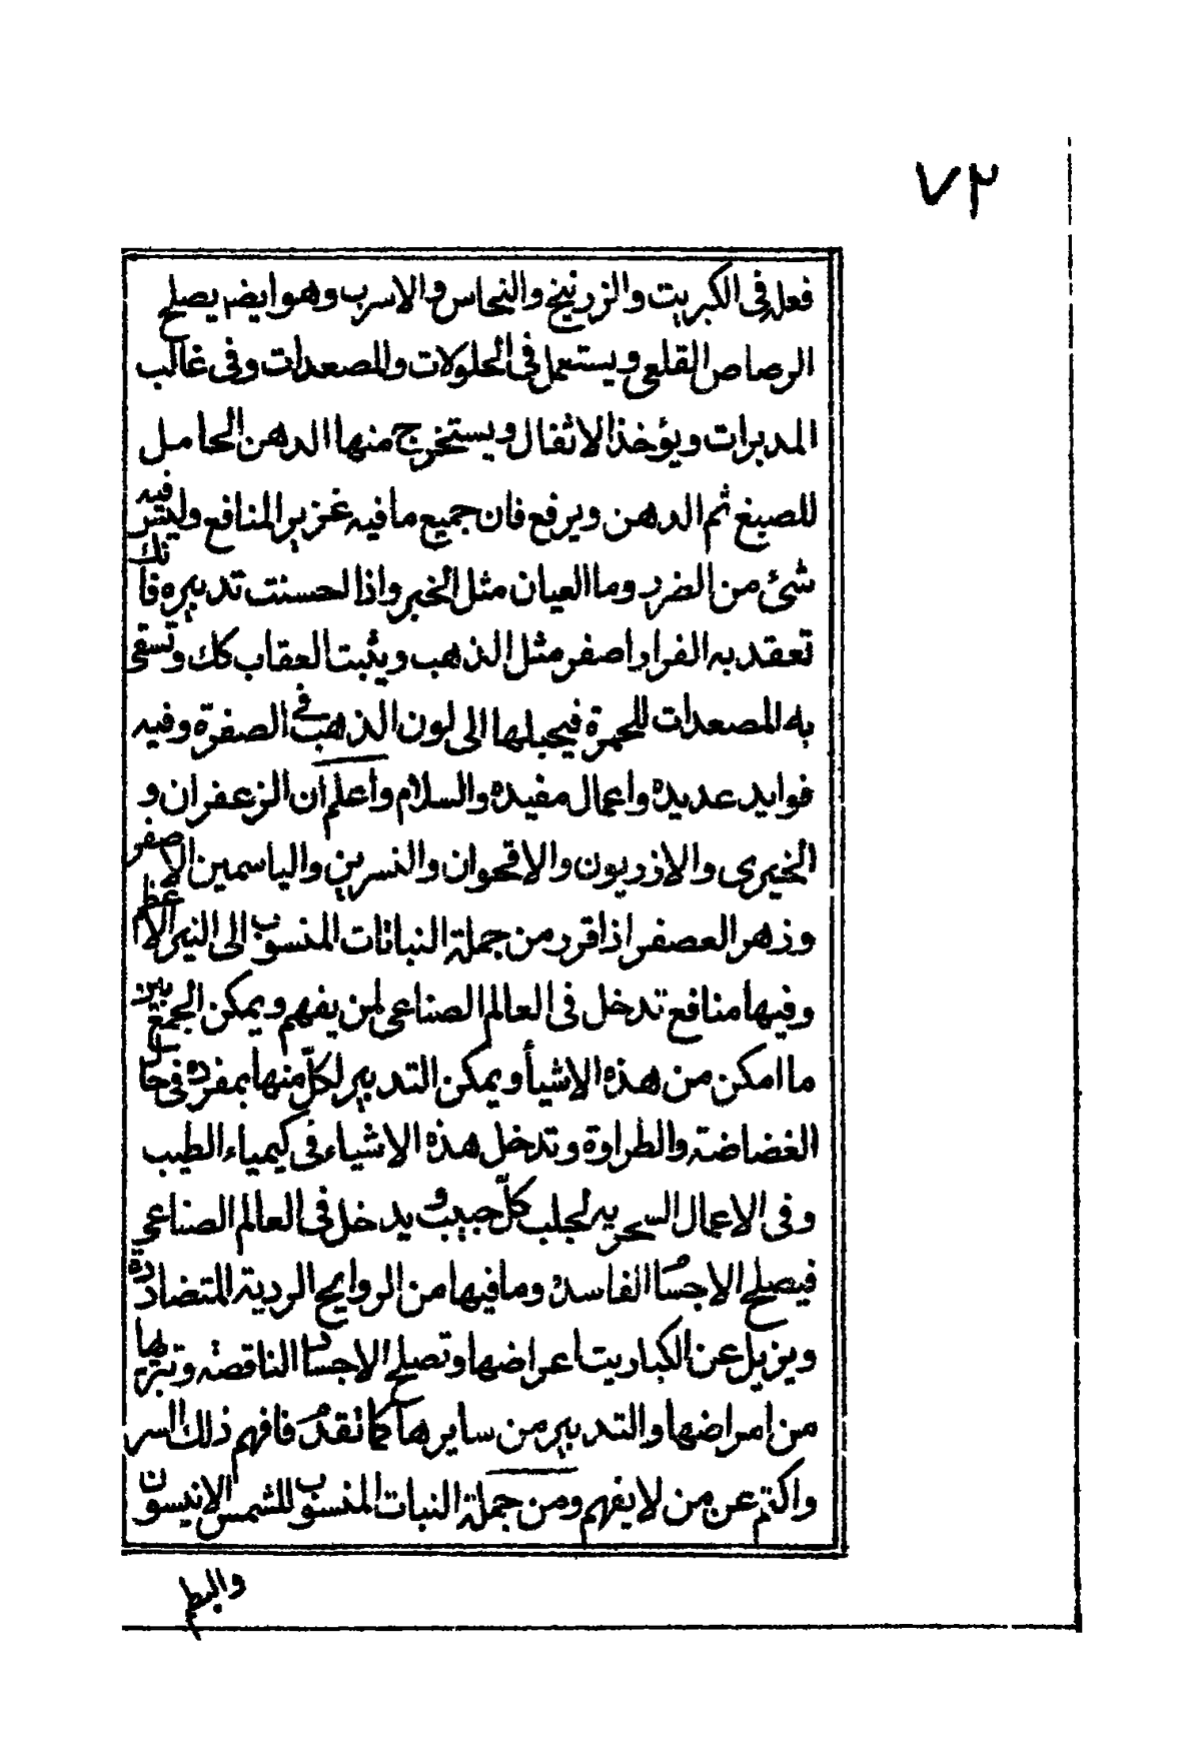 ٧٢
فعله فى الكبريت والزرنيخ والنحاس والاسرب وهو ايضه يصلح
الرصاص القلعى ويستعمل فى الحلولات والمصعدات وفى غالب
المدبرات ويؤخذ الاثفال ويستخرج منها الدهن الحامل
للصبغ ثم الدهن ويرفع فان جميع ما فيه غزير المنافع وليس فيه
شئ من الضرر وما العيان مثل الخبر واذا احسنت تدبيره فانك
تعقد به الفرار اصفر مثل الذهب ويثبت العقاب كك وتسقى
به المصعدات للحمرة فيحيلها الى لون الذهب فى الصفرة وفيه
فوايد عديدة واعمال مفيده والسلام واعلم ان الزعفران و
الخيرى والاذريون والاقحوان والنسرين والياسمين الاصفر
وزهر العصفر اذا قرر من جملة النباتات المنسوب الى النير الاعظم
وفيها منافع تدخل فى العالم الصناعى لمن يفهم ويمكن الجمع بين
ما امكن من هذه الاشيأ ويمكن التدبير لكلّ منها بمفرده فى حال
الغضاضة والطراوة وتدخل هذه الاشياء فى كيمياء الطيب
وفى الاعمال السحريه لجلب كلّ حبيب ويدخل فى العالم الصناعى
فيصلح الاجسام الفاسدة وما فيها من الروايح الردية المتضادة
ويزيل عن الكباريت اعراضها وتصلح الاجساد الناقصة وتبريها
من امراضها والتدبير من سايرها كما تقدم فافهم ذلك السر
واكتم عن من لا يفهم ومن جملة النبات المنسوب للشمس الانيسون
والبطم